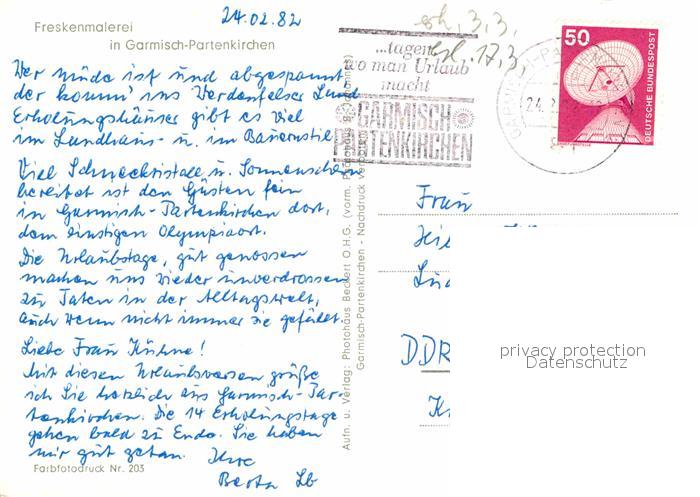 24.02.82
Freskenmalerei
in Garmisch-Partenkirchen
Wer müde ist und abgespannt
der komm' ins Werdenfelser Land
Erholungshäuser gibt es viel
im Landhaus- u. im Bauernstil
Viel Schneekristalle u. Sonnenschein
bereitet ist den Gästen fein
in Garmisch-Partenkirchen dort,
dem einstigen Olympiaort.
Die Urlaubstage, gut genossen
machen uns wieder unverdrossen
zu Taten in der Alltagswelt,
auch wenn nicht immer sie gefällt.
Liebe Frau Kühne!
Mit diesen Urlaubsversen grüße
ich Sie herzlich aus Garmisch-Par-
tenkirchen. Die 14 Erholungstage
gehen bald zu Ende. Sie haben
mir gut getan. Ihre
Berta Lb
Farbfotodruck Nr. 203
Aufn. u. Verlag: Photohaus Beckert O.H.G. (vorm. Photohaus B. Johannes)
Garmisch-Partenkirchen - Nachdruck verboten
erh. 3,3,
bl. 17,3,
...tagen
wo man Urlaub
macht
GARMISCH
PARTENKIRCHEN
24.2.
50
DEUTSCHE BUNDESPOST
Frau
DDR
privacy protection
Datenschutz